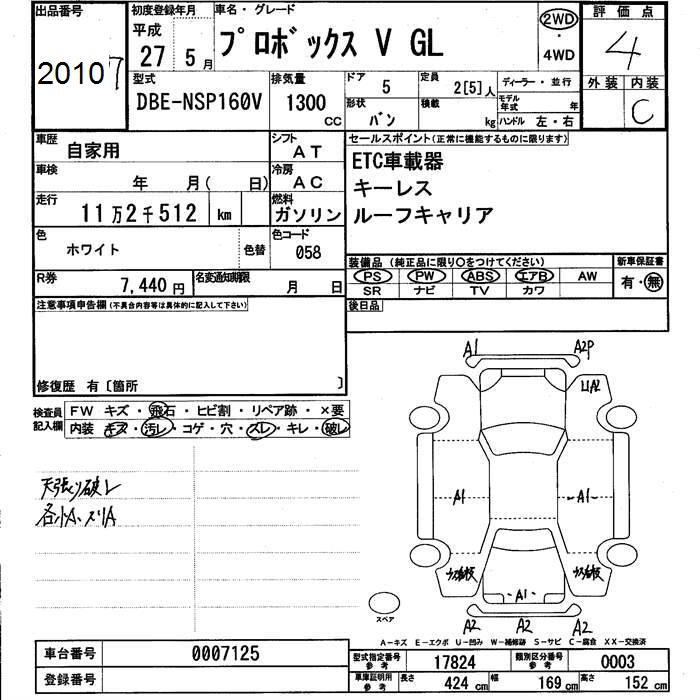 出品番号
20107
初度登録年月
平成
27 5月
車名・グレード
プロボックス V GL
2WD
・
4WD
評価点
4
外装 内装
C
型式
DBE-NSP160V
排気量
1300
CC
ドア
5
定員
2[5]人
ディーラー・並行
形状
バン
積載
kg
モデル年式
年
ハンドル 左・右
車歴
自家用
シフト
AT
車検
年 月( 日)
冷房
AC
走行
11万2千512 km
燃料
ガソリン
色
ホワイト
色替
色コード
058
R券
7,440円
名変通知期限
月 日
セールスポイント(正常に機能するものに限ります)
ETC車載器
キーレス
ルーフキャリア
装備品(純正品に限り○をつけてください)
PS PW ABS エアB AW
SR ナビ TV カワ
新車保証書
有・無
後日品
注意事項申告欄(不具合内容等は具体的に記入して下さい)
修復歴 有〔箇所 〕
検査員
記入欄
FW キズ・飛石・ヒビ割・リペア跡・×要
内装 キズ・汚レ・コゲ・穴・スレ・キレ・破レ
天張り破レ
各小A、スリA
A1 A2P
A1
A1
A1
A2 A2 A2
スペア
A-キズ E-エクボ U-凹み W-補修跡 S-サビ C-腐食 XX-交換済
車台番号
0007125
登録番号
型式指定番号
参考
17824
類別区分番号
参考
0003
車庫証明用
参考
長さ
424 cm
幅
169 cm
高さ
152 cm